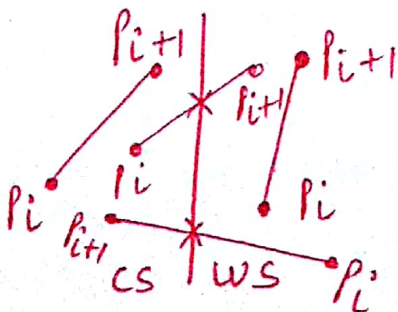 Pi+1
Pi+1
Pi+1
Pi
Pi
Pi
Pi+1
CS
WS
Pi